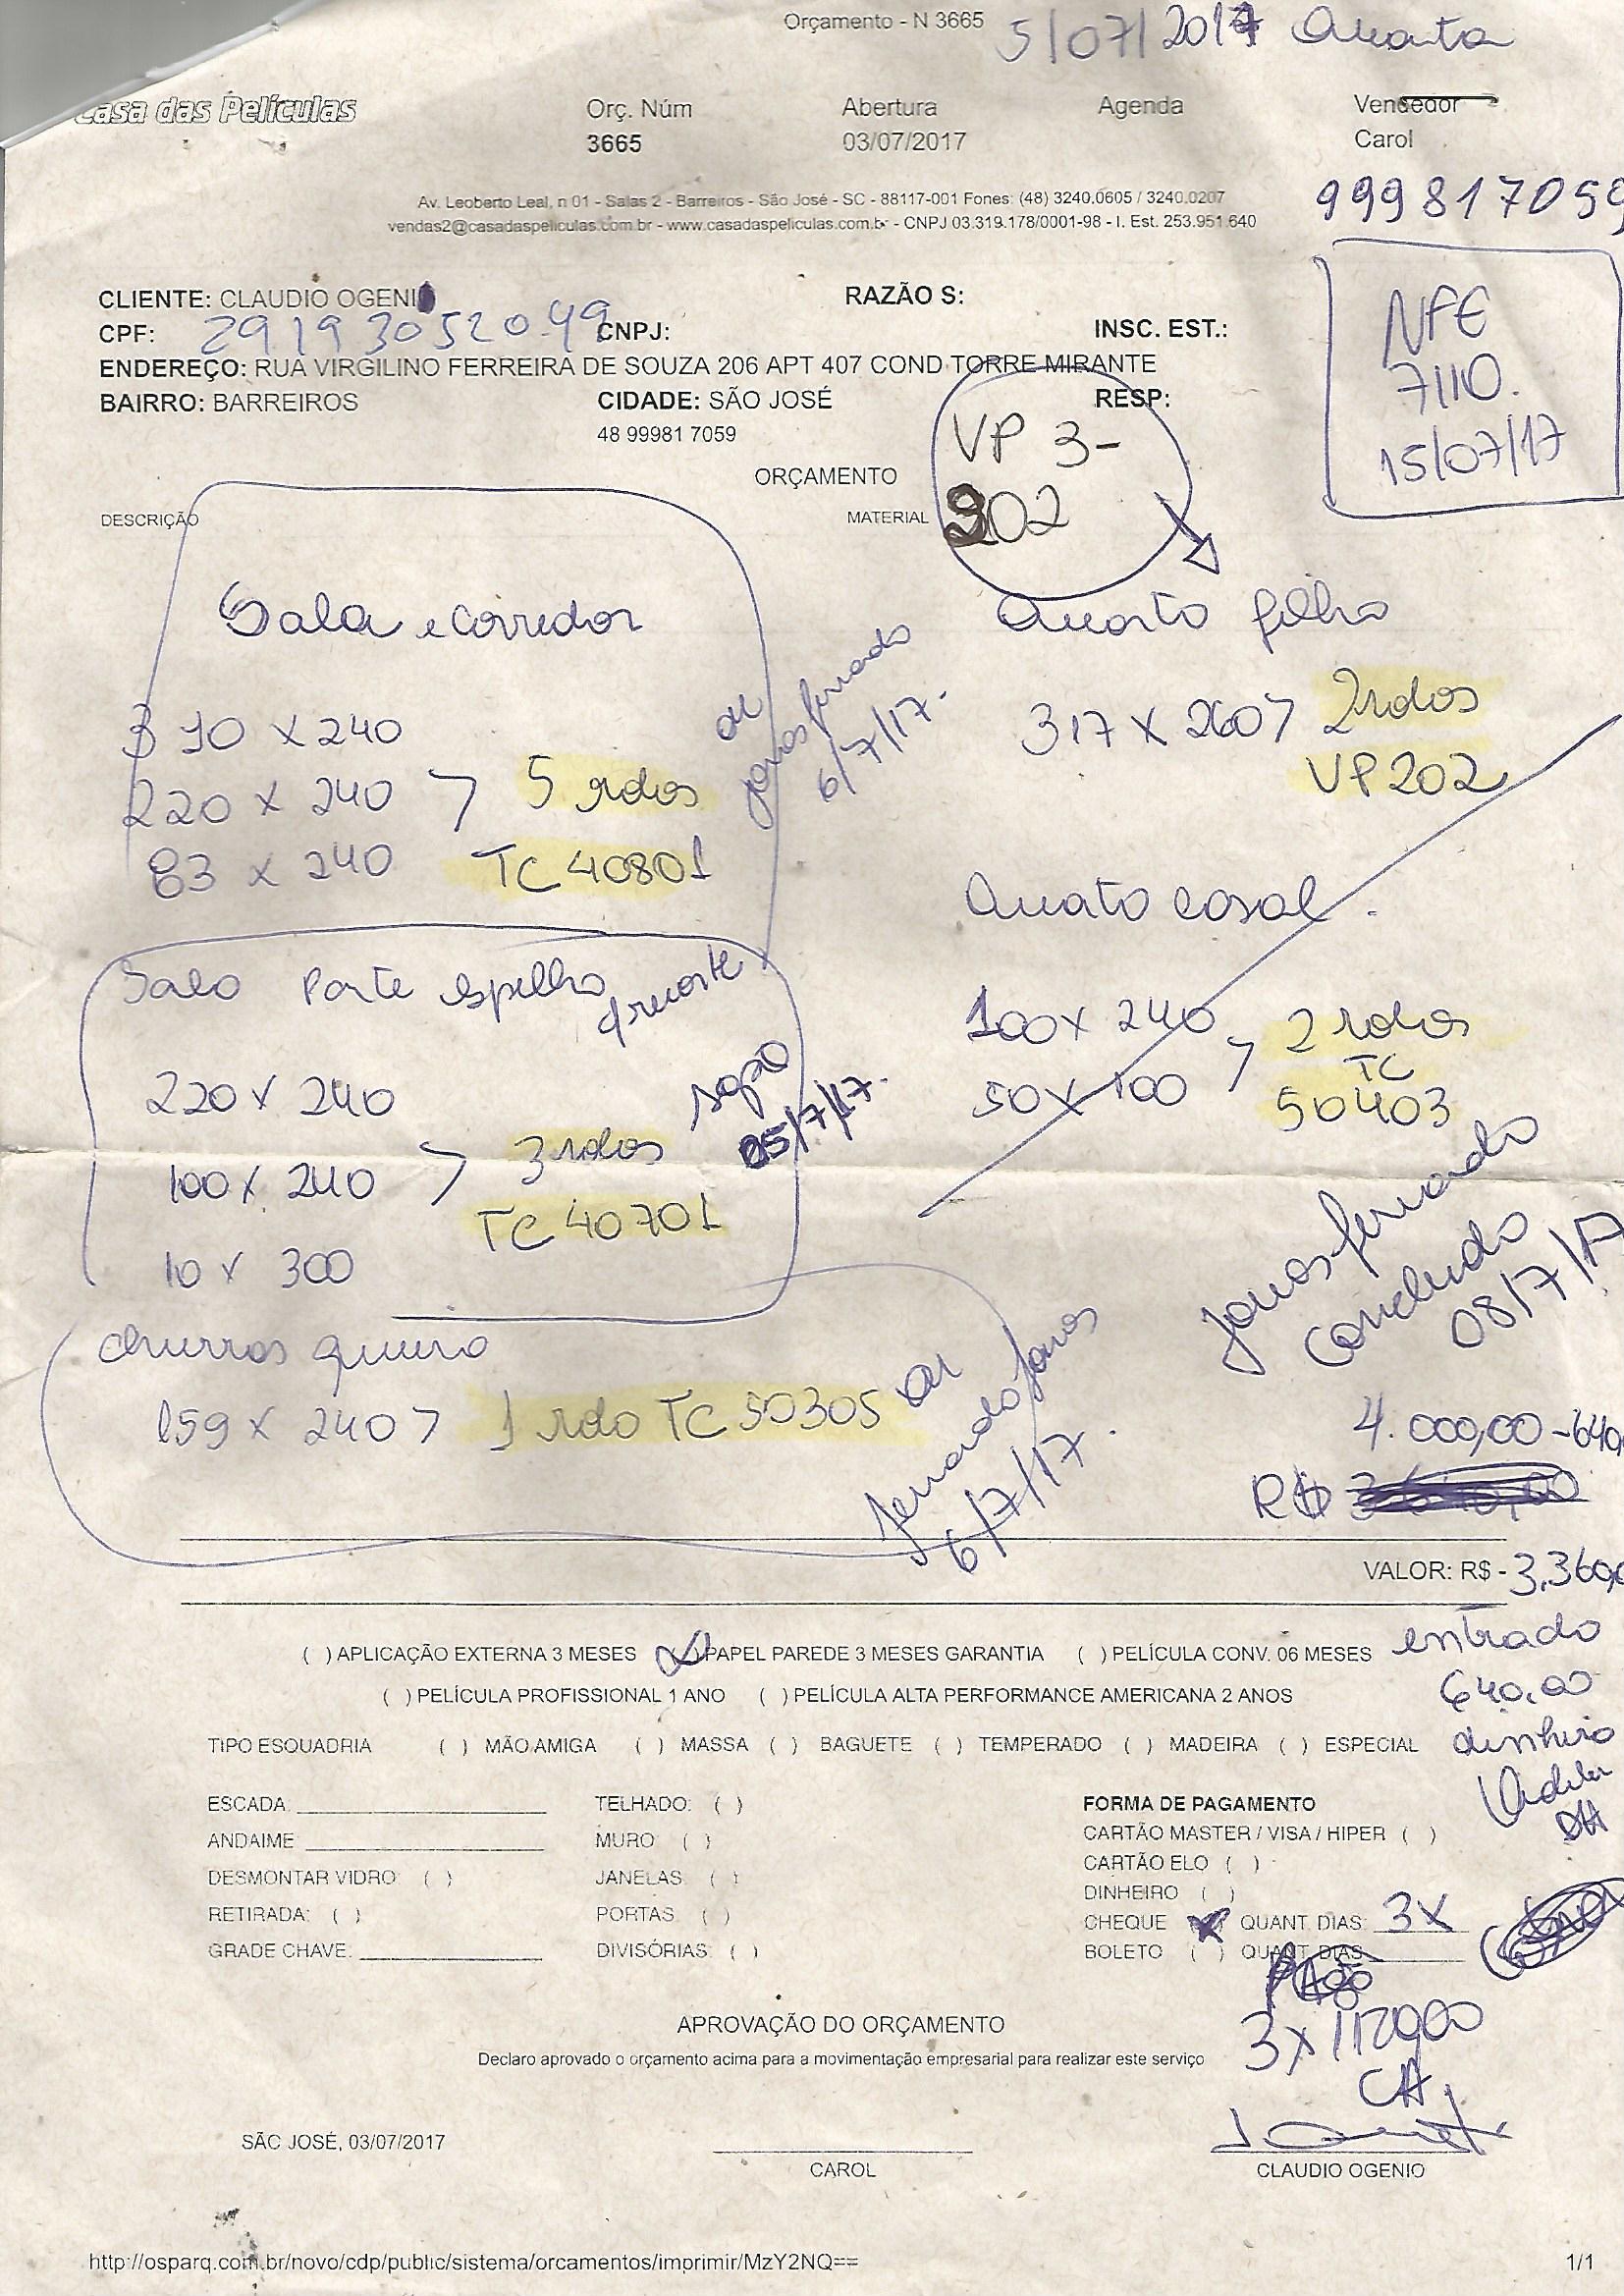 Orçamento - N 3665
5/07/2017 Quarta
Casa das Películas
Orç. Núm Abertura Agenda Vendedor
3665 03/07/2017 Carol
Av. Leoberto Leal, n 01 - Salas 2 - Barreiros - São José - SC - 88117-001 Fones: (48) 3240.0605 / 3240.0207
vendas2@casadaspeliculas.com.br - www.casadaspeliculas.com.br - CNPJ 03.319.178/0001-98 - I. Est. 253.951.640
999817059
NFE
7110.
15/07/17
CLIENTE: CLAUDIO OGENI RAZÃO S:
CPF: 291930520.49 CNPJ: INSC. EST.:
ENDEREÇO: RUA VIRGILINO FERREIRA DE SOUZA 206 APT 407 COND TORRE MIRANTE
BAIRRO: BARREIROS CIDADE: SÃO JOSÉ RESP:
48 99981 7059
VP 3-
202
ORÇAMENTO
DESCRIÇÃO MATERIAL
Sala e corredor
310 x 240
220 x 240 > 5 rolos
83 x 240 TC 40801
ok
Jonas fernando
6/7/17.
Quarto filho
317 x 260 > 2 rolos
VP 202
Quato casal.
100 x 240 > 2 rolos
TC
50 x 100 50403
Sala Parte espelho
220 x 240
100 x 240 > 3 rolos
TC 40701
10 x 300
05/7/17.
churras queira
159 x 240 > 1 rolo TC 50305 ok
fernando Jonas
6/7/17.
Jonas fernando
Concluido
08/7/17
4.000,00 - 640,
R$
VALOR: R$ - 3.360,0
( ) APLICAÇÃO EXTERNA 3 MESES (X) PAPEL PAREDE 3 MESES GARANTIA ( ) PELÍCULA CONV. 06 MESES
( ) PELÍCULA PROFISSIONAL 1 ANO ( ) PELÍCULA ALTA PERFORMANCE AMERICANA 2 ANOS
entrada
640,00
dinheiro
TIPO ESQUADRIA ( ) MÃO AMIGA ( ) MASSA ( ) BAGUETE ( ) TEMPERADO ( ) MADEIRA ( ) ESPECIAL
ESCADA: TELHADO: ( ) FORMA DE PAGAMENTO
ANDAIME: MURO: ( ) CARTÃO MASTER / VISA / HIPER ( )
DESMONTAR VIDRO: ( ) JANELAS: ( ) CARTÃO ELO ( )
DINHEIRO ( )
RETIRADA: ( ) PORTAS: ( ) CHEQUE (X) QUANT. DIAS: 3X
GRADE CHAVE: DIVISÓRIAS: ( ) BOLETO ( ) QUANT. DIAS:
3x 1120,00
CH
APROVAÇÃO DO ORÇAMENTO
Declaro aprovado o orçamento acima para a movimentação empresarial para realizar este serviço
SÃO JOSÉ, 03/07/2017
CAROL CLAUDIO OGENIO
http://osparq.com.br/novo/cdp/public/sistema/orcamentos/imprimir/MzY2NQ== 1/1